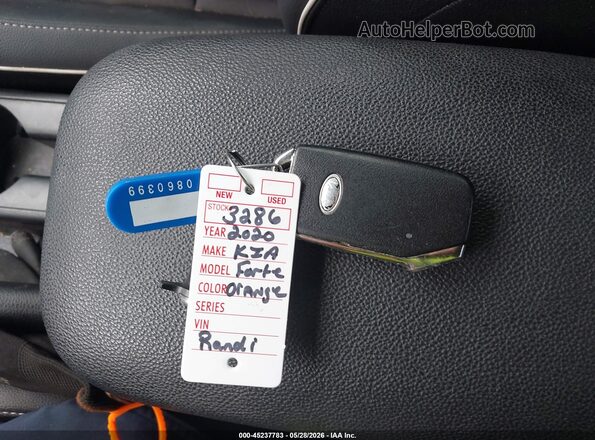 AutoHelperBot.com
0860399
NEW USED
STOCK 3286
YEAR 2020
MAKE KIA
MODEL Forte
COLOR Orange
SERIES
VIN
Randi
000-45237783 - 05/28/2026 - IAA Inc.